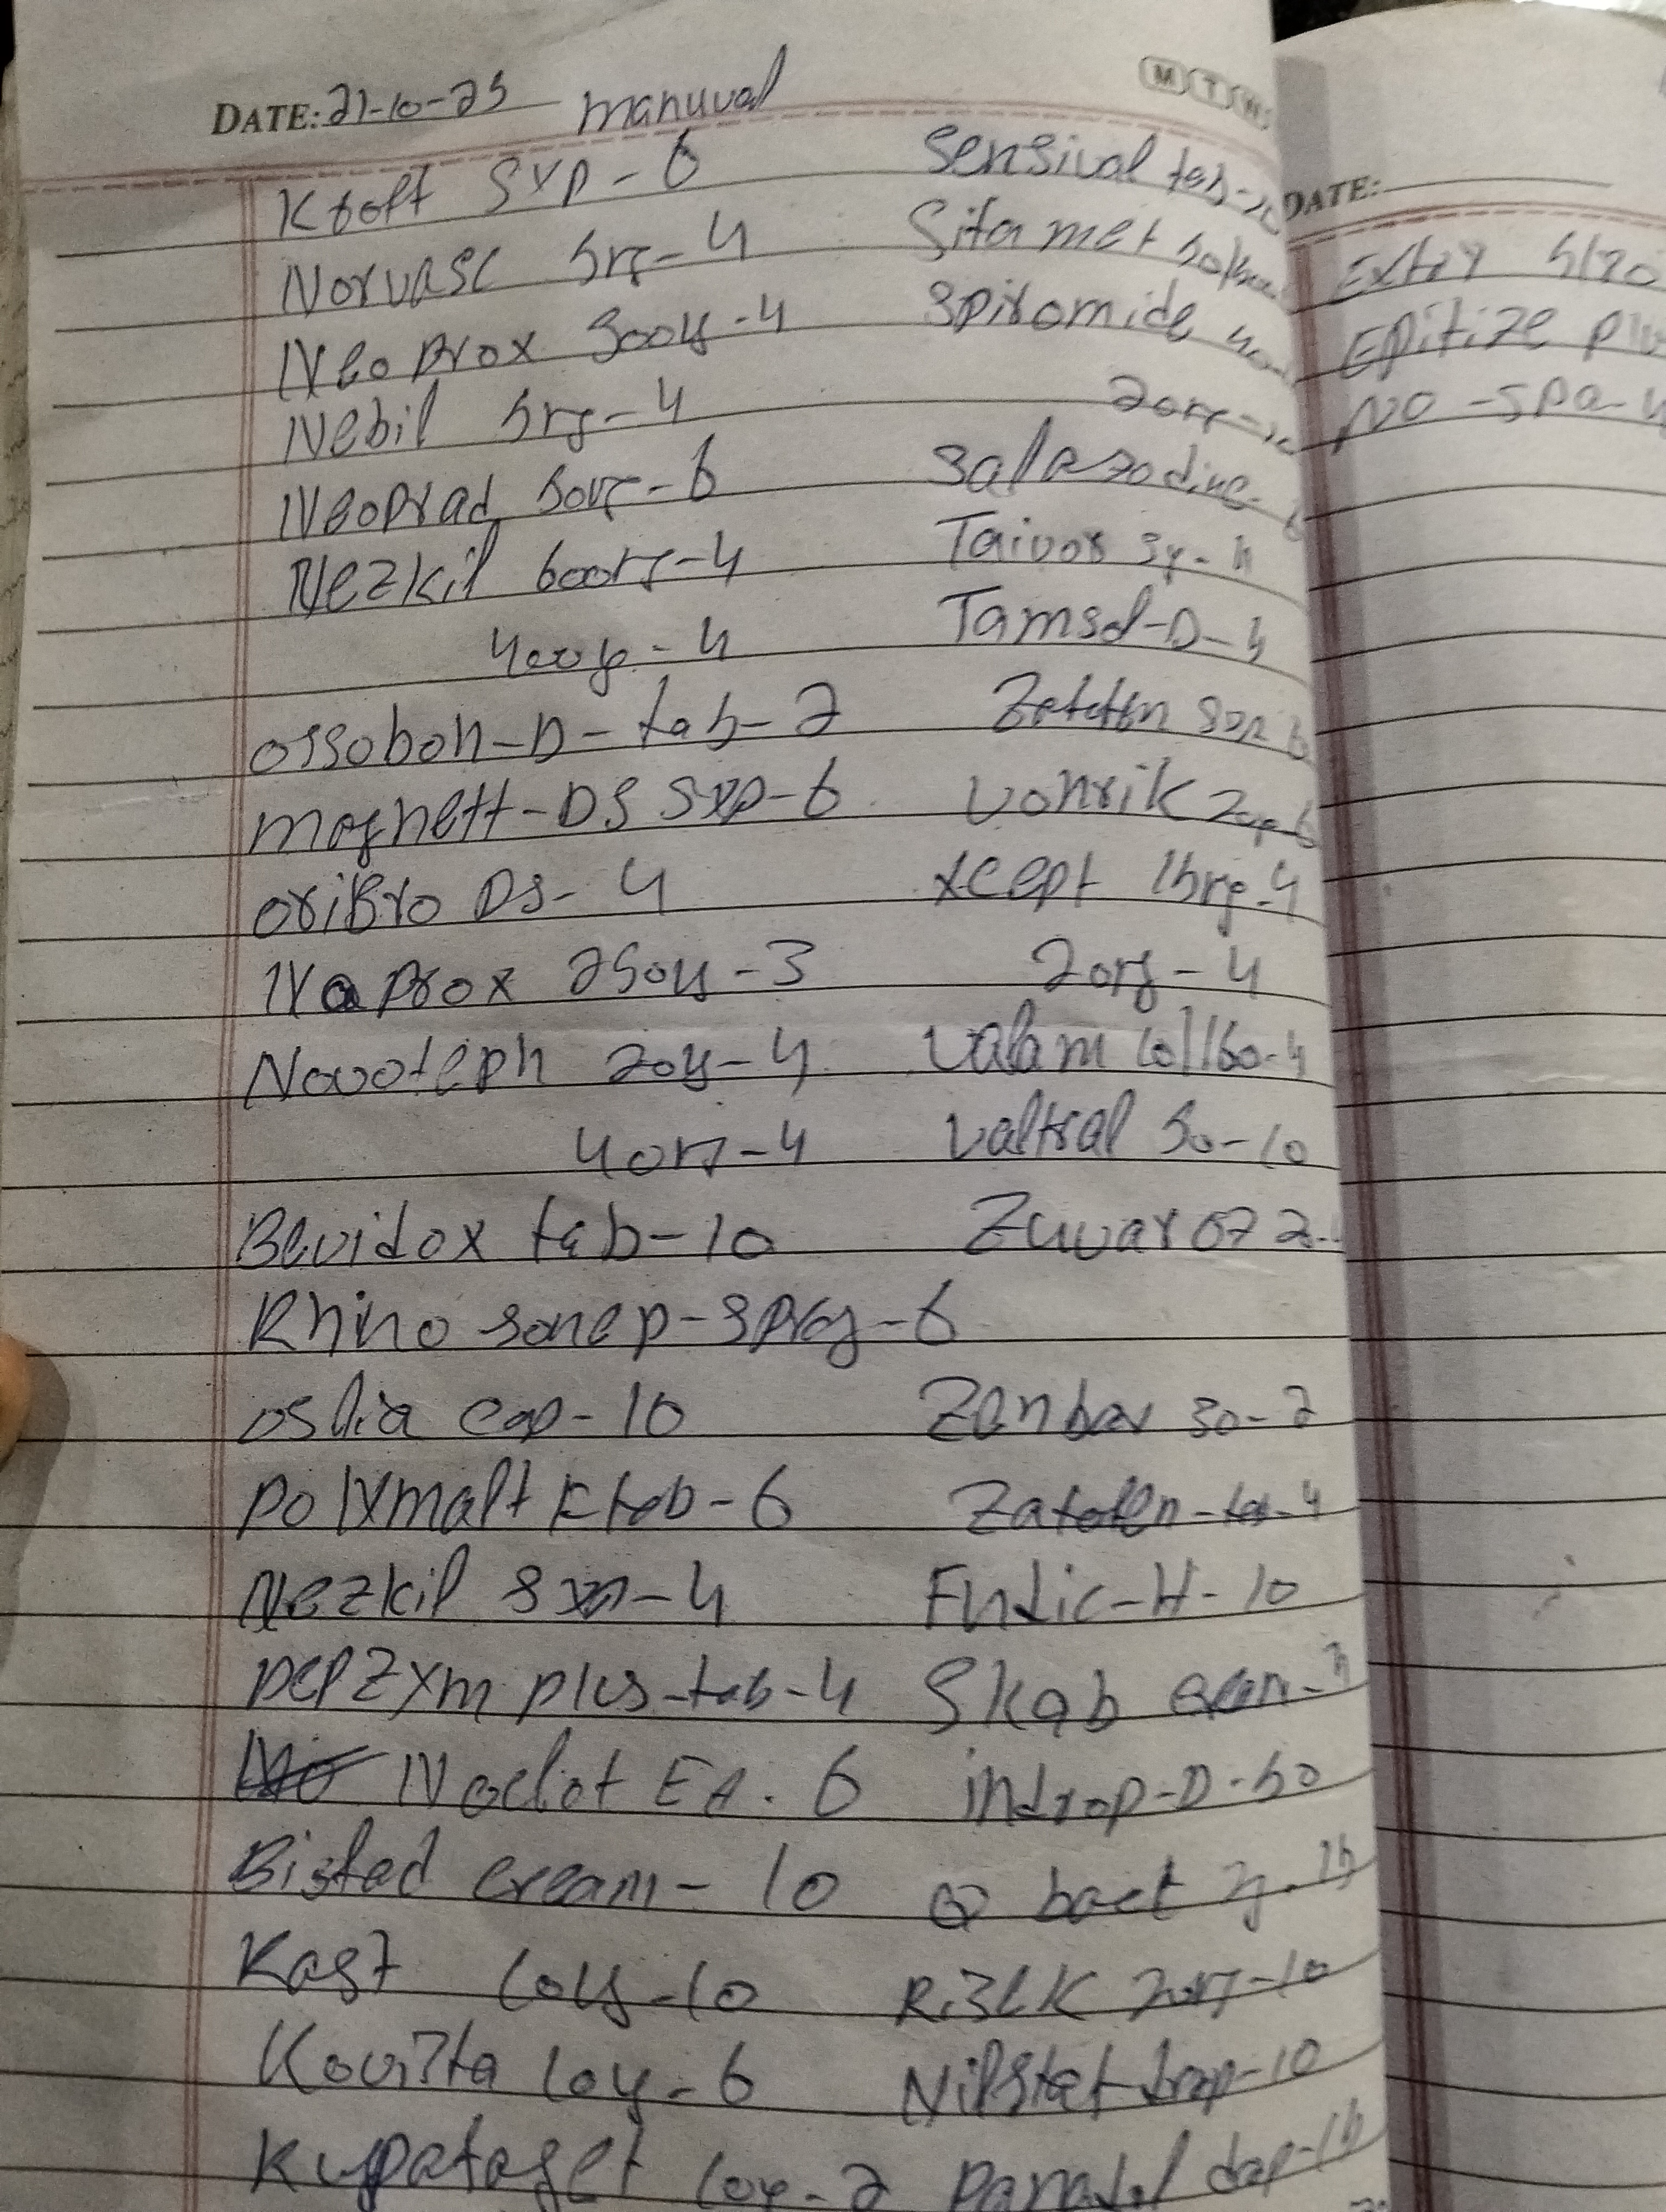 DATE: 21-10-25 manuval
M T W
Ktoft Syp - 6
Norvasc 5mg - 4
Neo prox 500mg - 4
Nebil 5mg - 4
Neoprad 50mg - 6
Nezkil 600mg - 4
400mg - 4
ossobon-D - tab - 2
Magnett-DS Syp - 6
oribro DS - 4
Naprox 250mg - 3
Novoteph 20mg - 4
40mg - 4
Bevidox tab - 10
Rhinosone p - spray - 6
oslia cap - 10
polymalt F tab - 6
Nezkil Syp - 4
pepzym plus - tab - 4
Noclot EA. 6
Bisted cream - 10
Kast 10mg - 10
10mg - 6
10mg - 2
Sensival tab -
Sita met 50/
Spiromide 40
20mg -
Salazodine -
Taivor
Tamsol-D - 4
Zatofen Syp 6
Vonrik 20mg 6
xcept 15mg - 4
20mg - 4
Valam 10/160 - 4
Valtral 50 - 10
Zuvar 
Zenbar 30 - 2
Zatofen - tab - 4
Fudic-H - 10
Skab cream -
indrop-D - 50
Q bact 2g. 15
Risek 20mg - 10
Nilstat drop - 10
Panadol drop - 15
DATE:
Extor 5/
Epitize plu
No-spa -